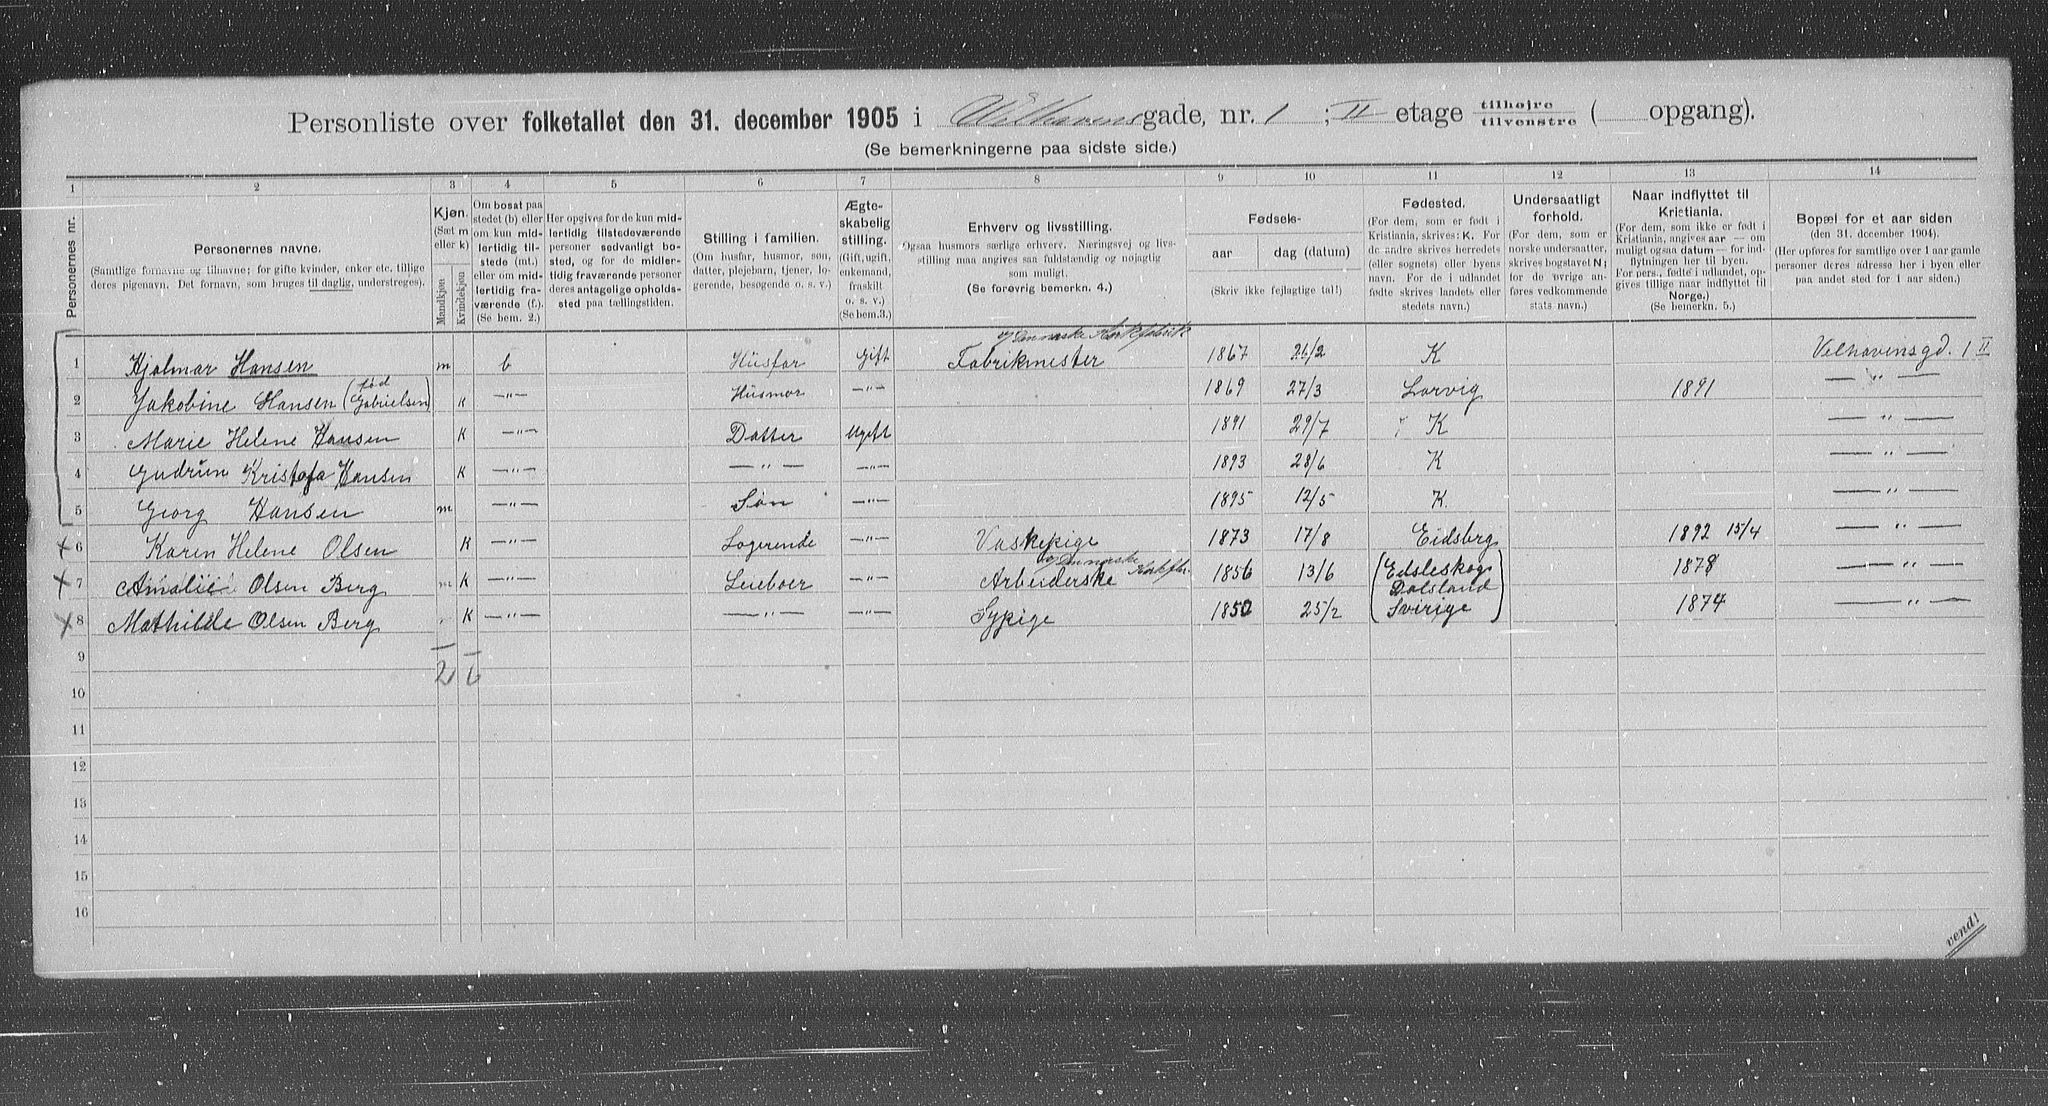 Personliste over folketallet den 31. december 1905 i Welhavens gade, nr. 1 ; II etage tilhøjre tilvenstre ( opgang).
(Se bemerkningerne paa sidste side.)
1 2 3 4 5 6 7 8 9 10 11 12 13 14
Personernes nr.
Personernes navne.
(Samtlige fornavne og tilnavne; for gifte kvinder, enker etc. tillige
deres pigenavn. Det fornavn, som bruges til daglig, understreges).
Kjøn.
(Sæt m
eller k)
Mandkjøn
Kvindekjøn
Om bosat paa
stedet (b) eller
om kun mid-
lertidig til-
stede (mt.)
eller om mid-
lertidig fra-
værende (f.).
(Se bem. 2.)
Her opgives for de kun mid-
lertidig tilstedeværende
personer sedvanlig bo-
sted, og for de midler-
tidig fraværende personer
deres antagelige opholds-
sted paa tællingstiden.
Stilling i familien.
(Om husfar, husmor, søn,
datter, plejebarn, tjener, lo-
gerende, besøgende o. s. v.)
Ægte-
skabelig
stilling.
(Gift, ugift,
enkemand,
fraskilt
o. s. v.)
(Se bem. 3.)
Erhverv og livsstilling.
Ogsaa husmors særlige erhverv. Næringsvej og livs-
stilling maa angives saa fuldstændig og nøjagtig
som muligt.
(Se forøvrig bemerkn. 4.)
Fødsels-
aar dag (datum)
(Skriv ikke fejlagtige tal!)
Fødested.
(For dem, som er født i
Kristiania, skrives: K. For
de andre skrives herredets
(eller sognets) eller byens
navn. For de i udlandet
fødte skrives landets eller
stedets navn.)
Undersaatligt
forhold.
(For dem, som er
norske undersaatter,
skrives bogstavet N;
for de øvrige an-
føres vedkommende
stats navn.)
Naar indflyttet til
Kristiania.
(For dem, som ikke er født i
Kristiania, angives aar — om
muligt ogsaa datum — for ind-
flytningen her til byen.
For pers., fødte i udlandet, op-
gives tillige naar indflyttet til
Norge.)
(Se bemerkn. 5.)
Bopæl for et aar siden
(den 31. december 1904).
(Her opføres for samtlige over 1 aar gamle
personer deres adresse her i byen eller
paa andet sted for 1 aar siden.)
1 Hjalmar Hansen m b Husfar Gift Fabrikmester v/ Den norske Korkfabrik 1867 26/2 K Velhavensgd. 1 II
2 Jakobine Hansen (fød Gabrielsen) K —"— Husmor —"— 1869 27/3 Larvig 1891 — " —
3 Marie Helene Hansen K —"— Datter Ugift 1891 29/7 K — " —
4 Gudrun Kristofa Hansen K —"— — " — —"— 1893 28/6 K — " —
5 Georg Hansen m —"— Søn —"— 1895 12/5 K. — " —
x 6 Karen Helene Olsen K —"— Logerende —"— Vaskepige 1873 17/8 Eidsberg 1892 15/4 — " —
x 7 Amalie Olsen Berg m K —"— Leieboer —"— Arbeiderske v/ Den norske Korkfbr. 1856 13/6 (Edsleskog Dalsland 1878 — " —
x 8 Mathilde Olsen Berg K —"— — " — —"— Sypige 1850 25/2 Sverige) 1874 — " —
9 2 6
10
11
12
13
14
15
16
vend!